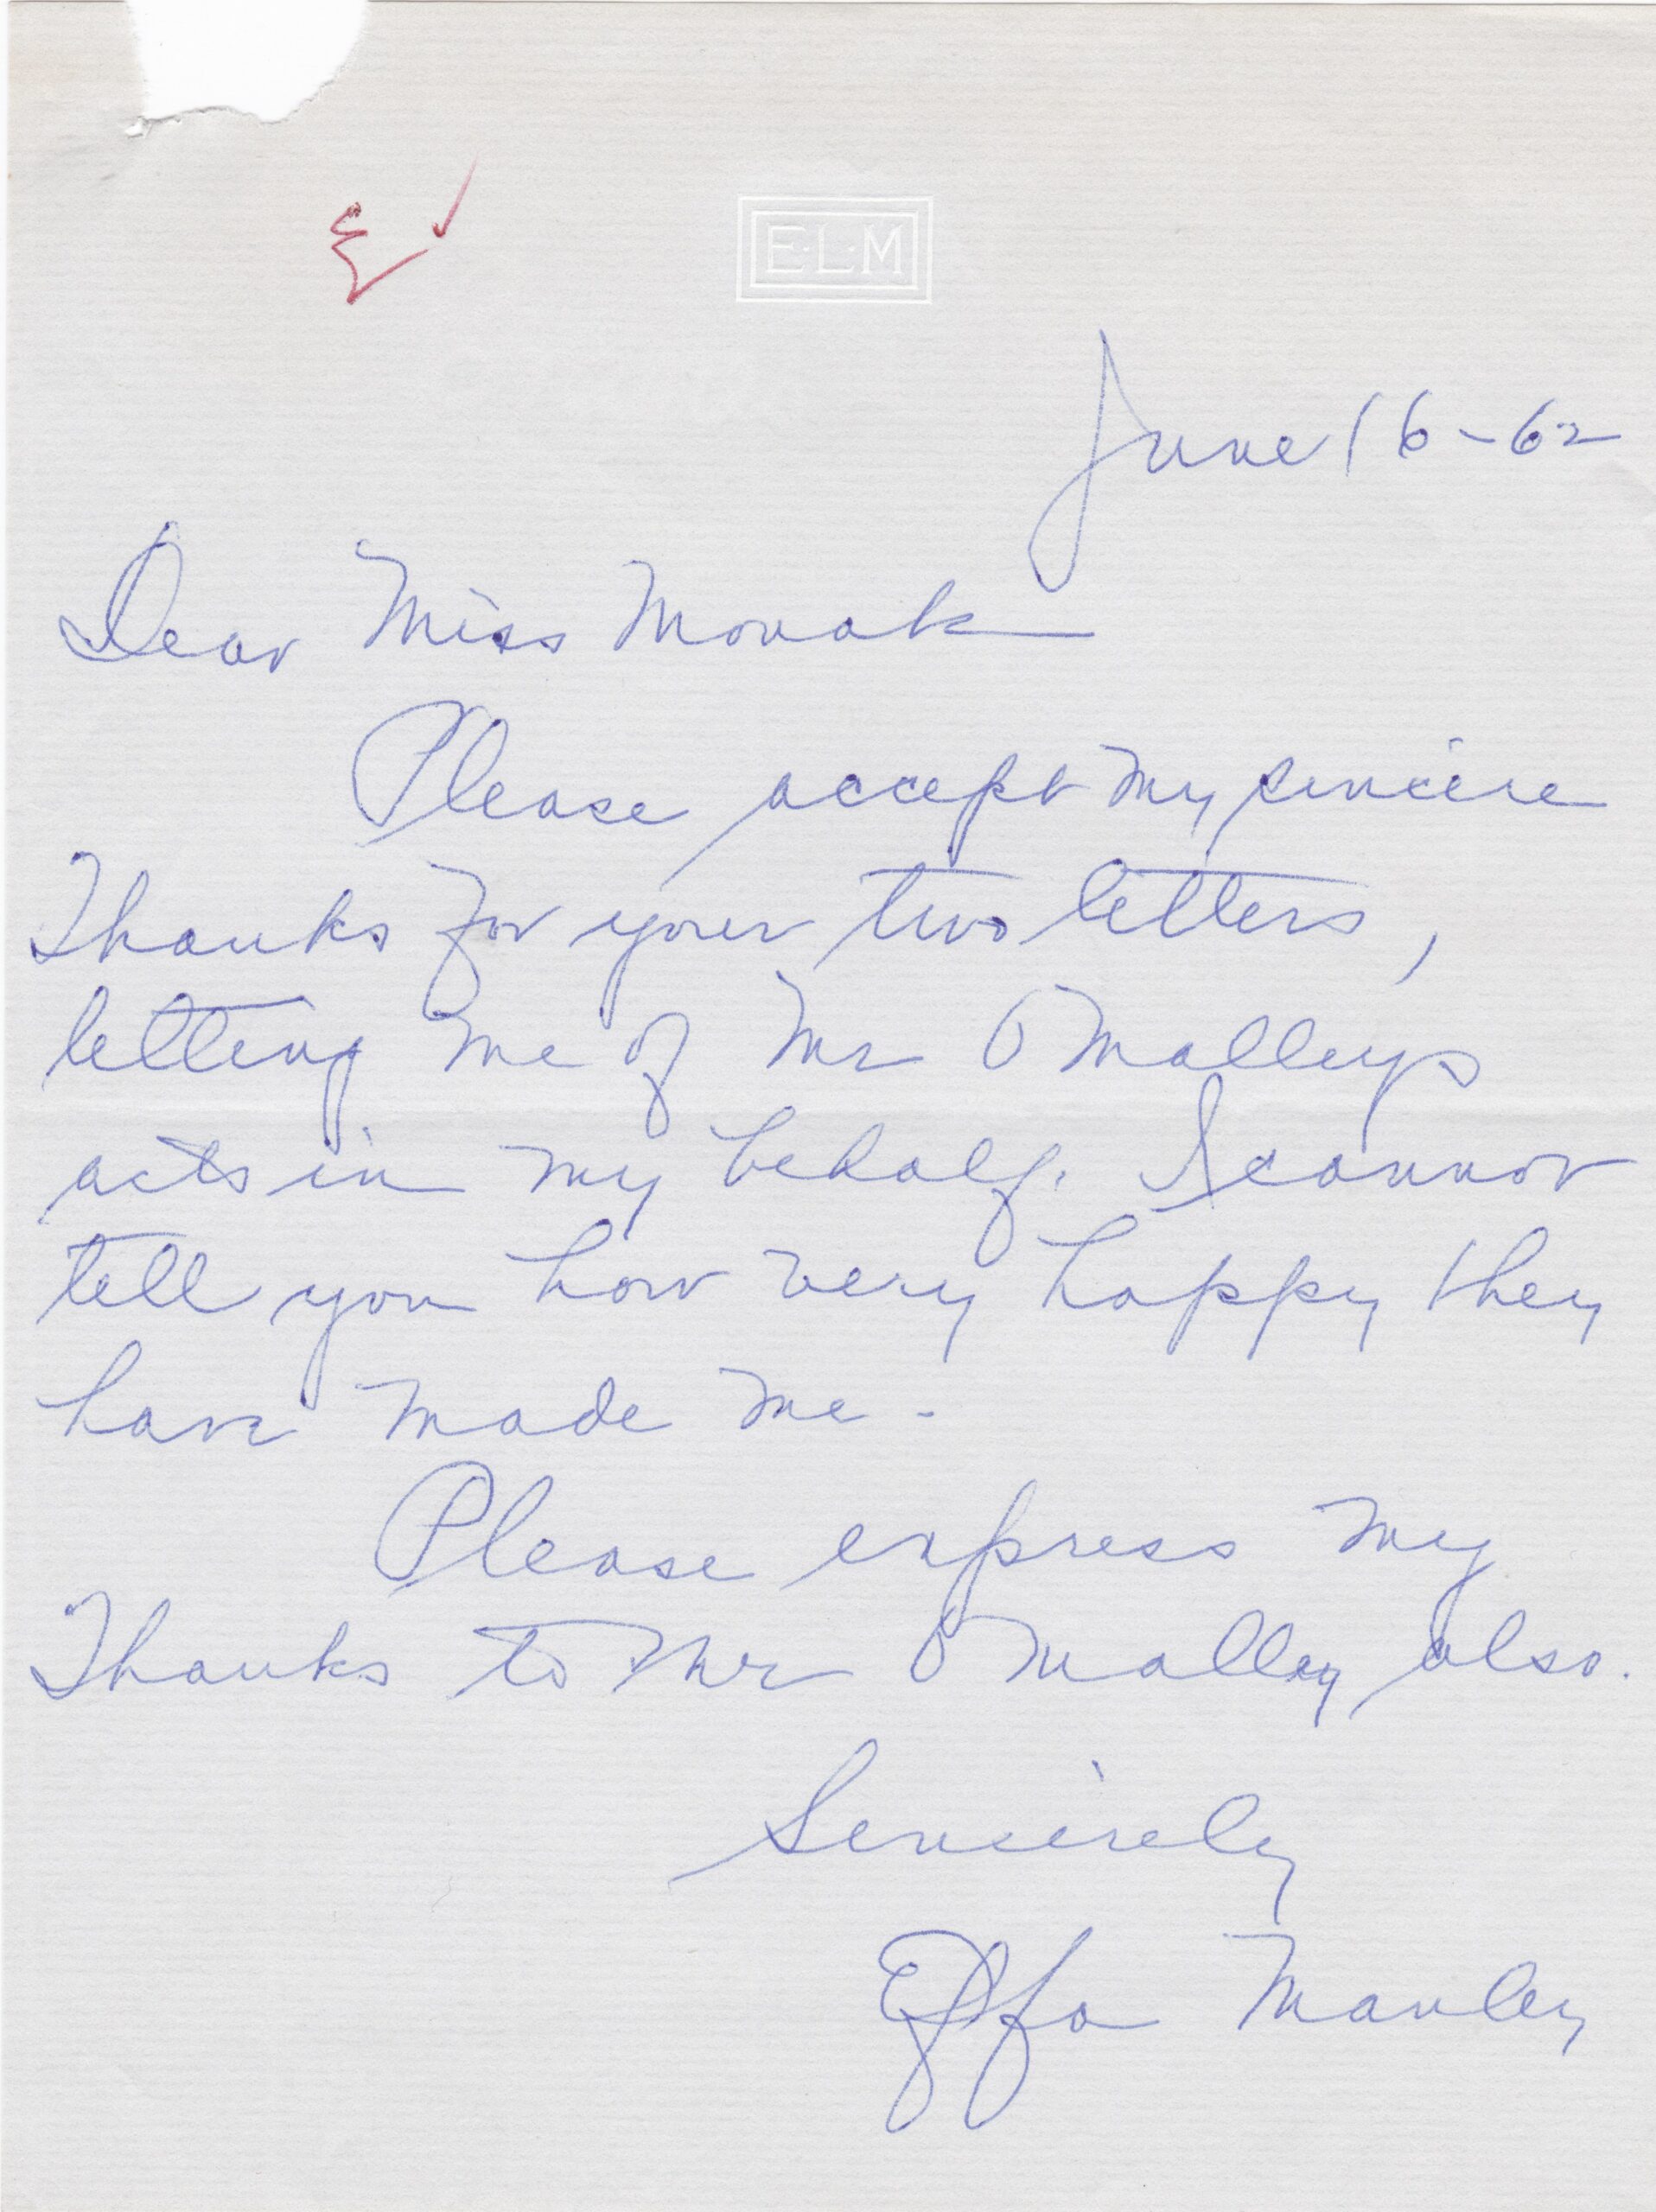 E·L·M
June 16-62
Dear Miss Monak
Please accept my sincere
Thanks for your two letters,
letting me of Mr O'Malleys
acts in my behalf. I cannot
tell you how very happy they
have made me.
Please express my
Thanks to Mr O'Malley also.
Sincerely
Effa Manley